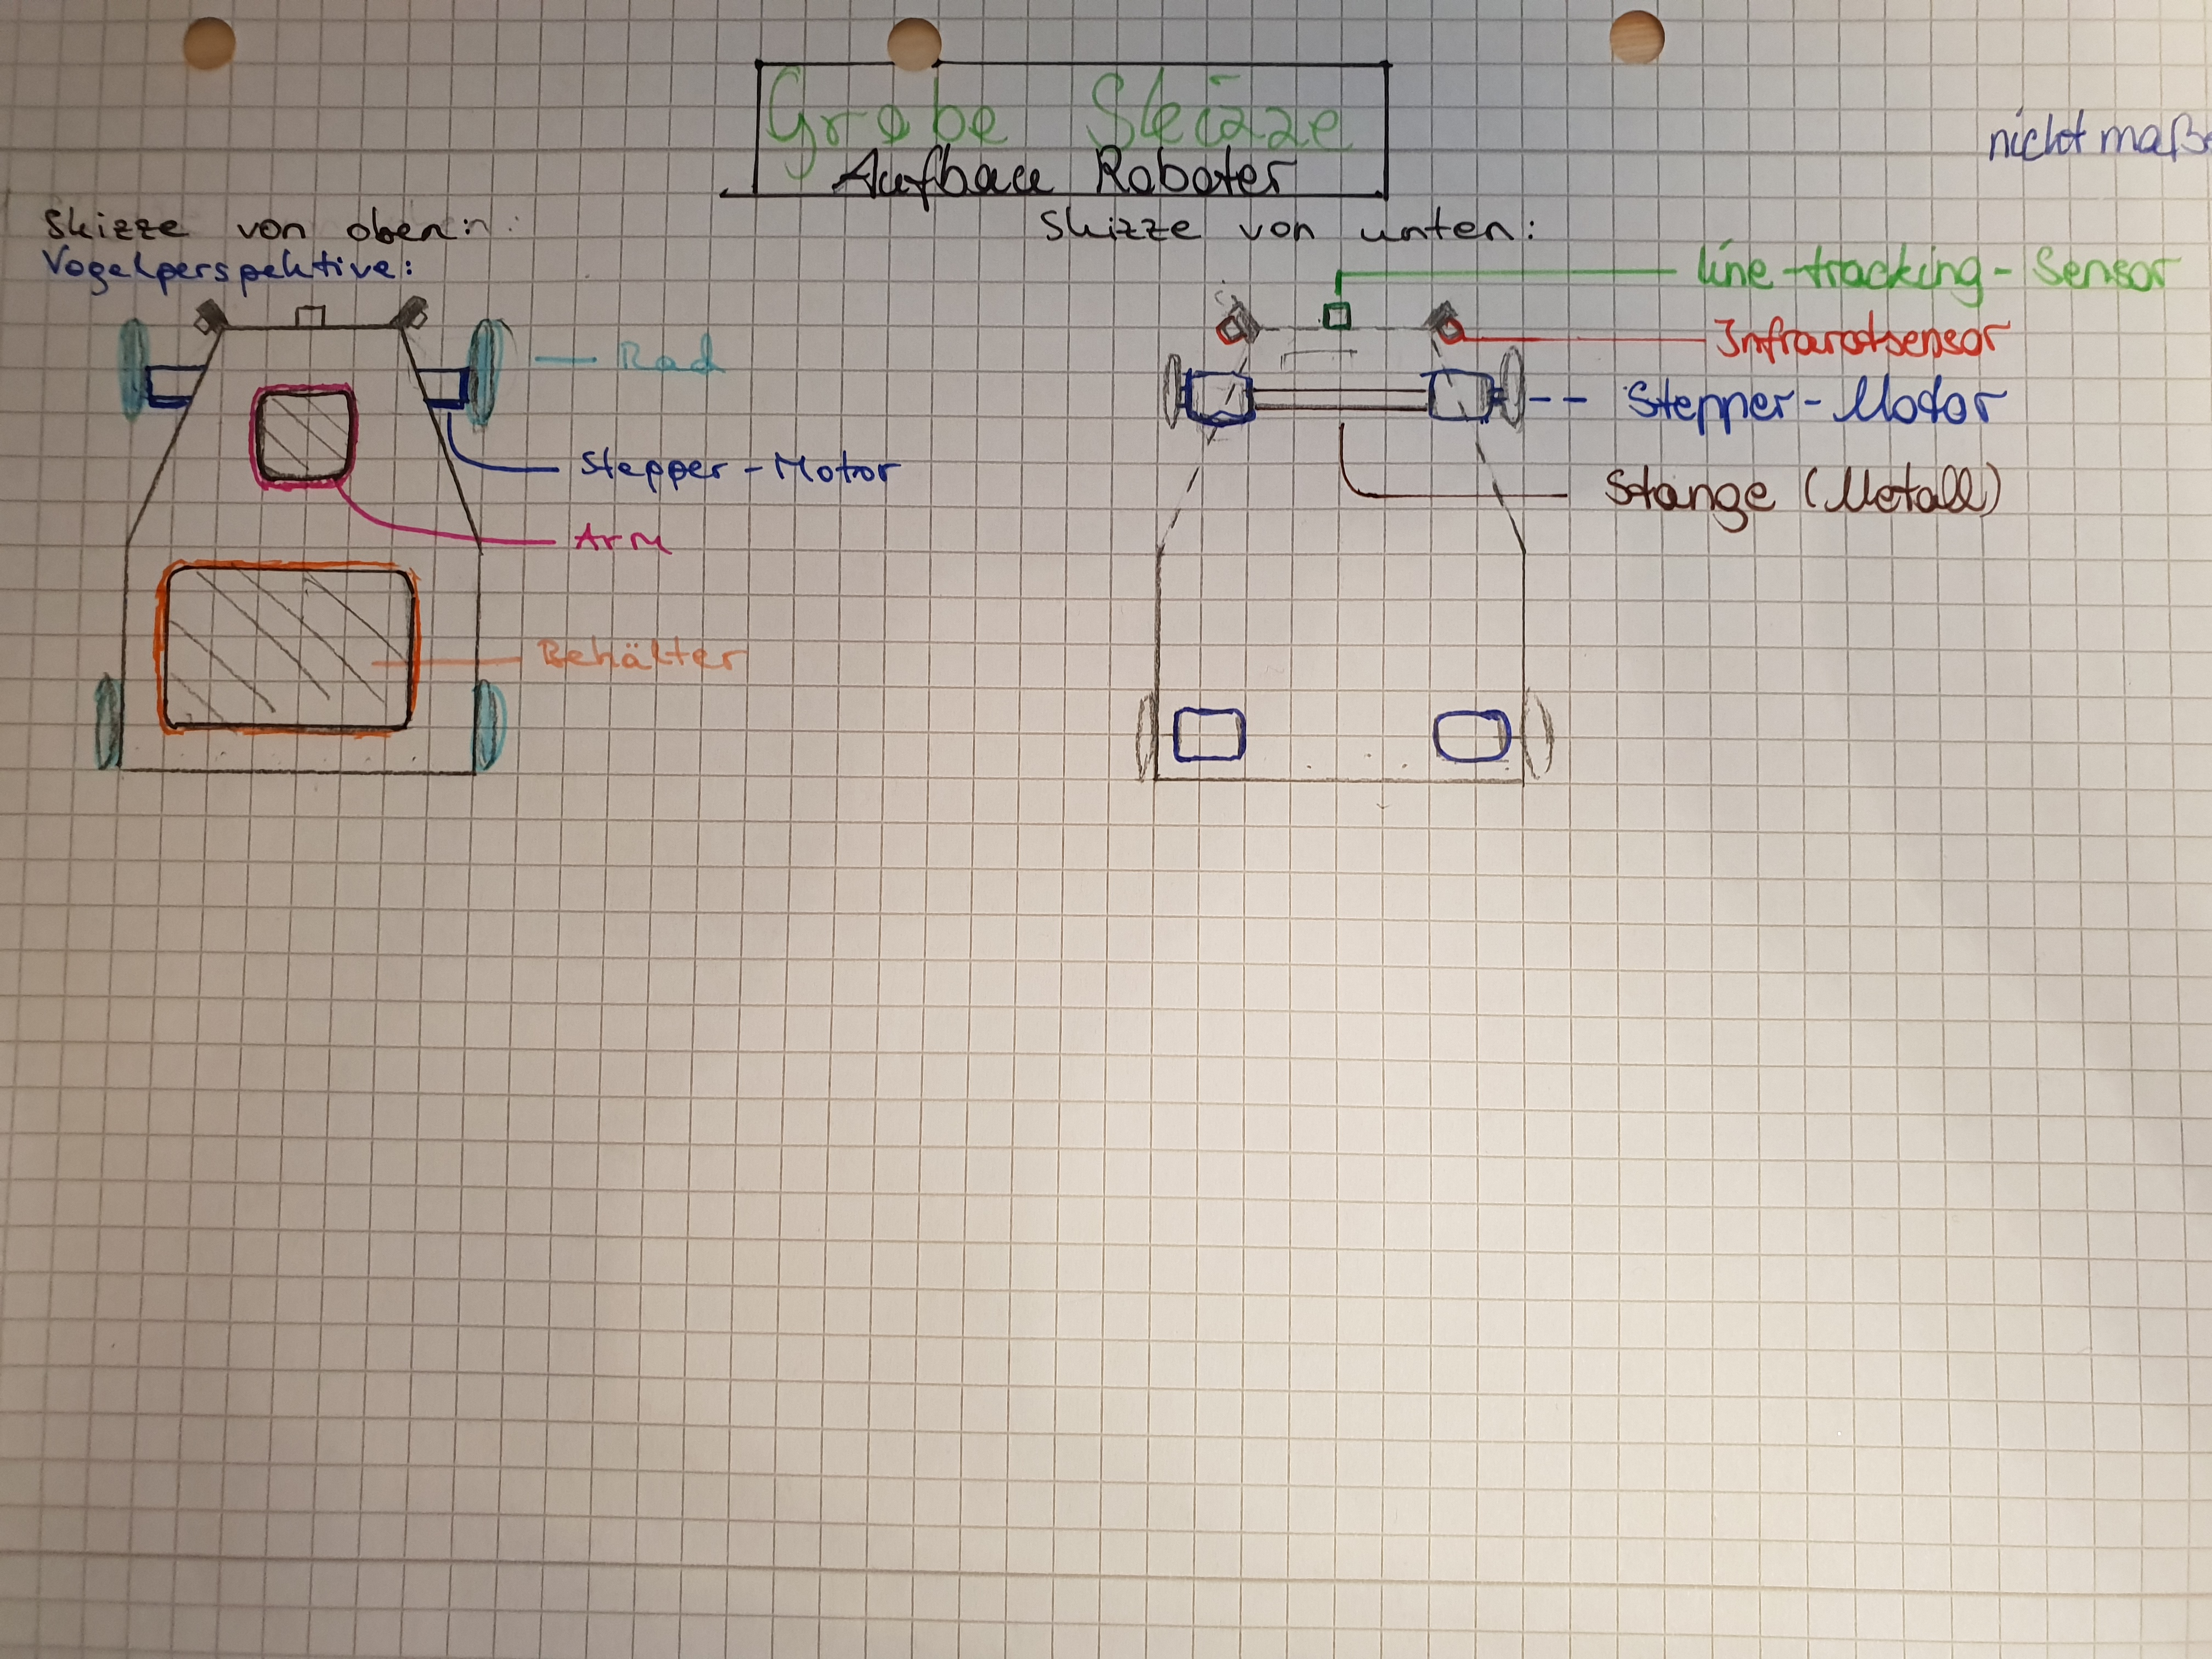 Grobe Skizze
Aufbau Roboter
nicht
Skizze von oben:
Vogelperspektive:
Rad
Stepper-Motor
Arm
Behälter
Skizze von unten:
line-tracking-Sensor
Infrarotsensor
Stepper-Motor
Stange (Metall)